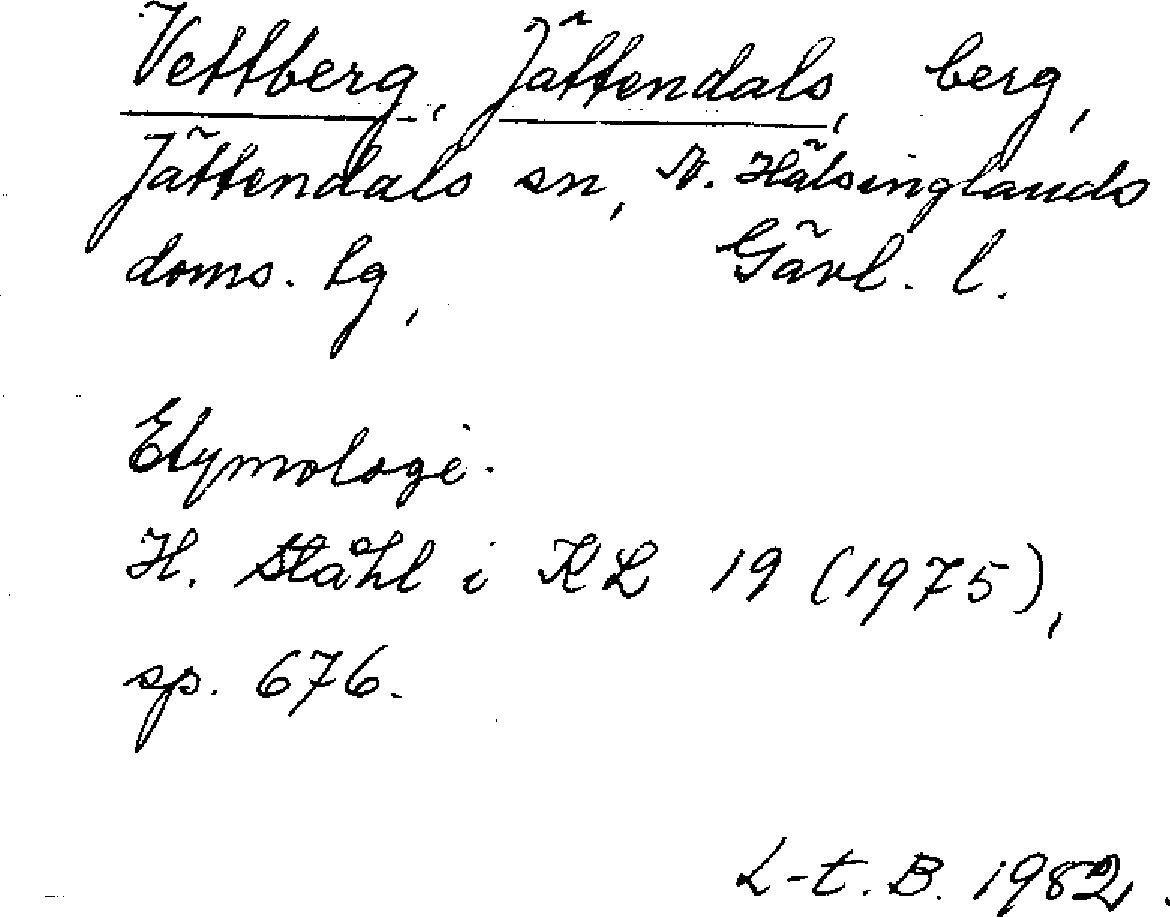 Vettberg, Jättendals, berg,
Jättendals sn, N. Hälsinglands
doms. lg, Gävl. l.
Etymologi.
H. Ståhl i KL 19 (1975),
sp. 676.
L-t. B. 1982.